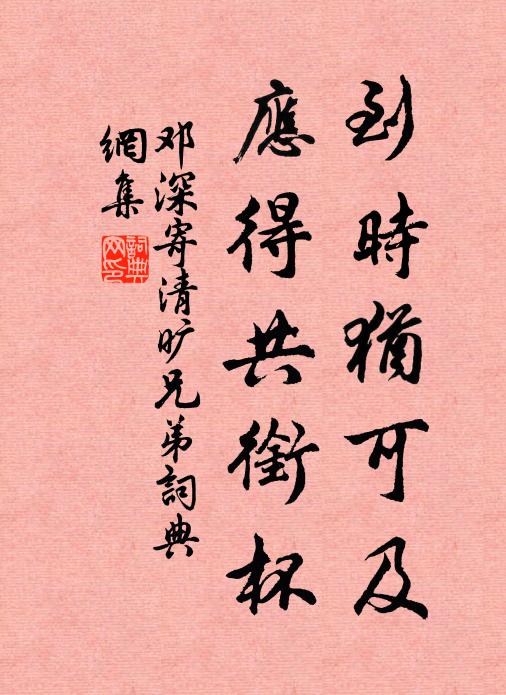 到時猶可及
應得共銜杯
邓深寄清旷兄弟詞典
網集
詞典
网印